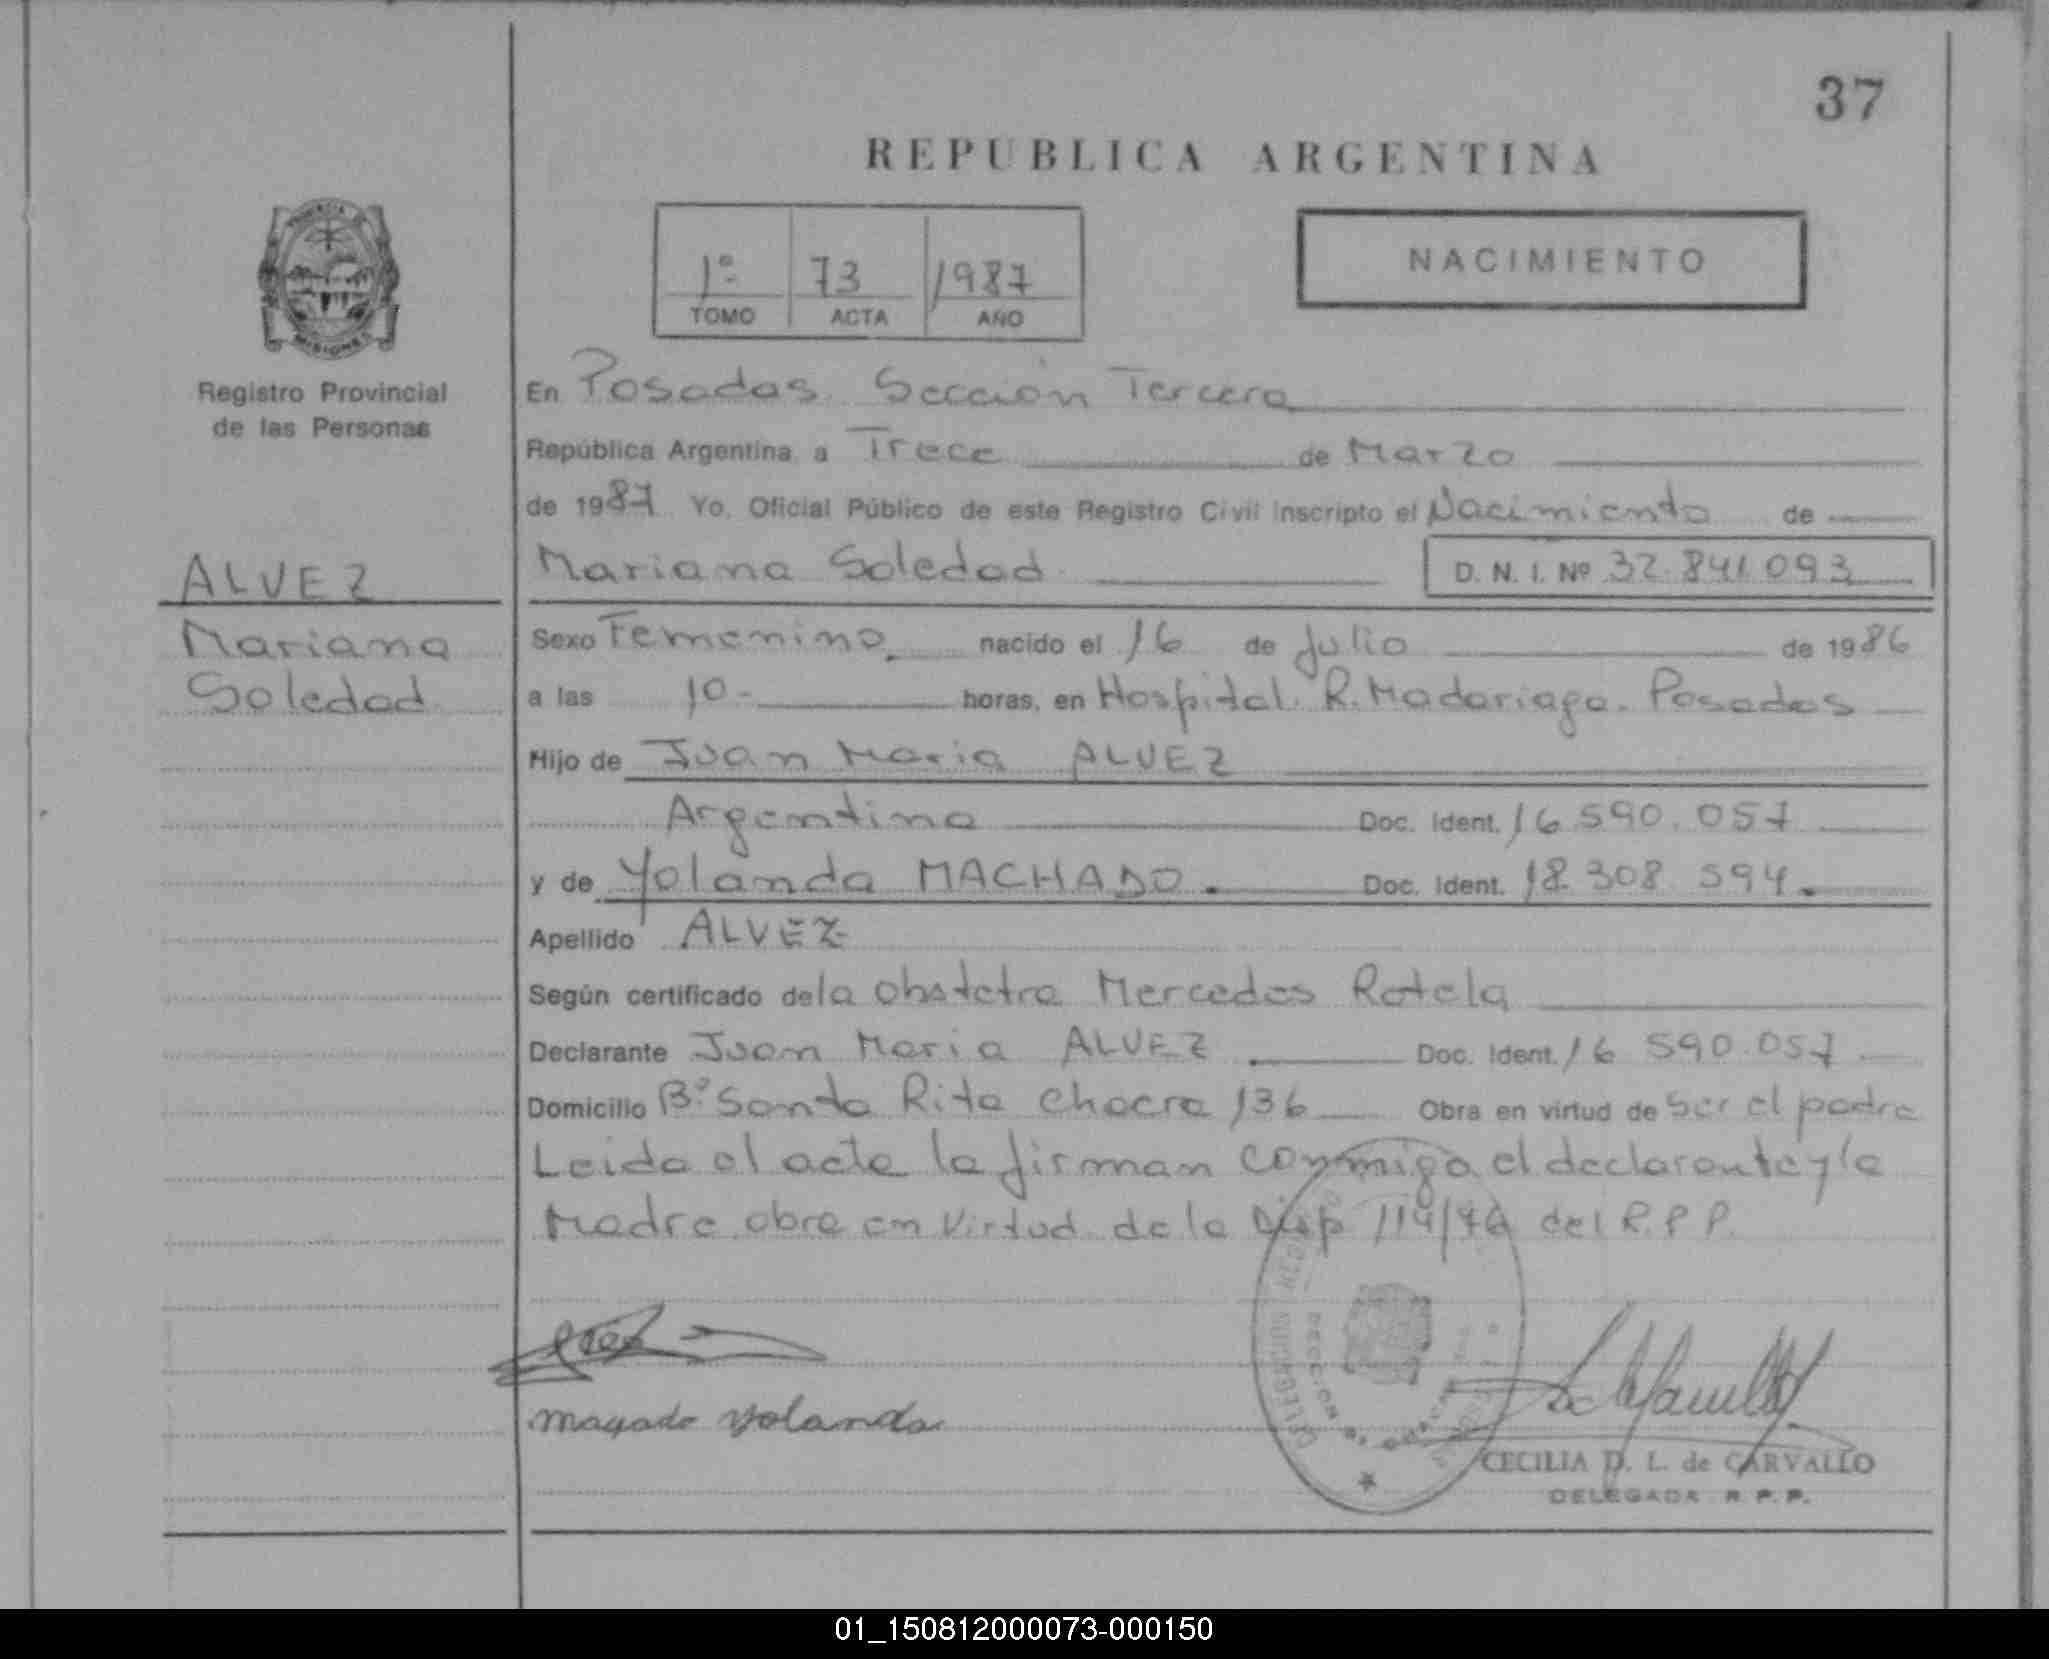 37
REPUBLICA ARGENTINA
PROVINCIA DE
MISIONES
Registro Provincial
de las Personas
1º 73 1987
TOMO ACTA AÑO
NACIMIENTO
En Posadas. Sección Tercera
República Argentina a Trece de Marzo
de 1987 Yo, Oficial Público de este Registro Civil Inscripto el Nacimiento de
ALVEZ
Mariana Soledad D. N. I. Nº 32.841.093
Mariana
Soledad
Sexo Femenino. nacido el 16 de Julio de 1986
a las 10.- horas, en Hospital. R. Madariaga. Posadas
Hijo de Juan Maria ALVEZ
Argentina Doc. Ident. 16 590.057
y de Yolanda MACHADO. Doc. Ident. 18.308 594.
Apellido ALVEZ
Según certificado de la obstetra Mercedes Rotela
Declarante Juan Maria ALVEZ Doc. Ident. 16 590.057
Domicilio Bº Santa Rita Chacra 136 Obra en virtud de ser el padre
Leida el acta la firman conmigo el declarante y la
Madre obra en virtud de la Disp 114/76 del R.P.P.
magado yolanda
CECILIA D. L. de CARVALLO
DELEGADA R. P. P.
01_150812000073-000150